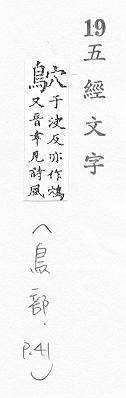 19 五經文字
于決反亦作
又音聿見詩風
(鳥部. p.41)